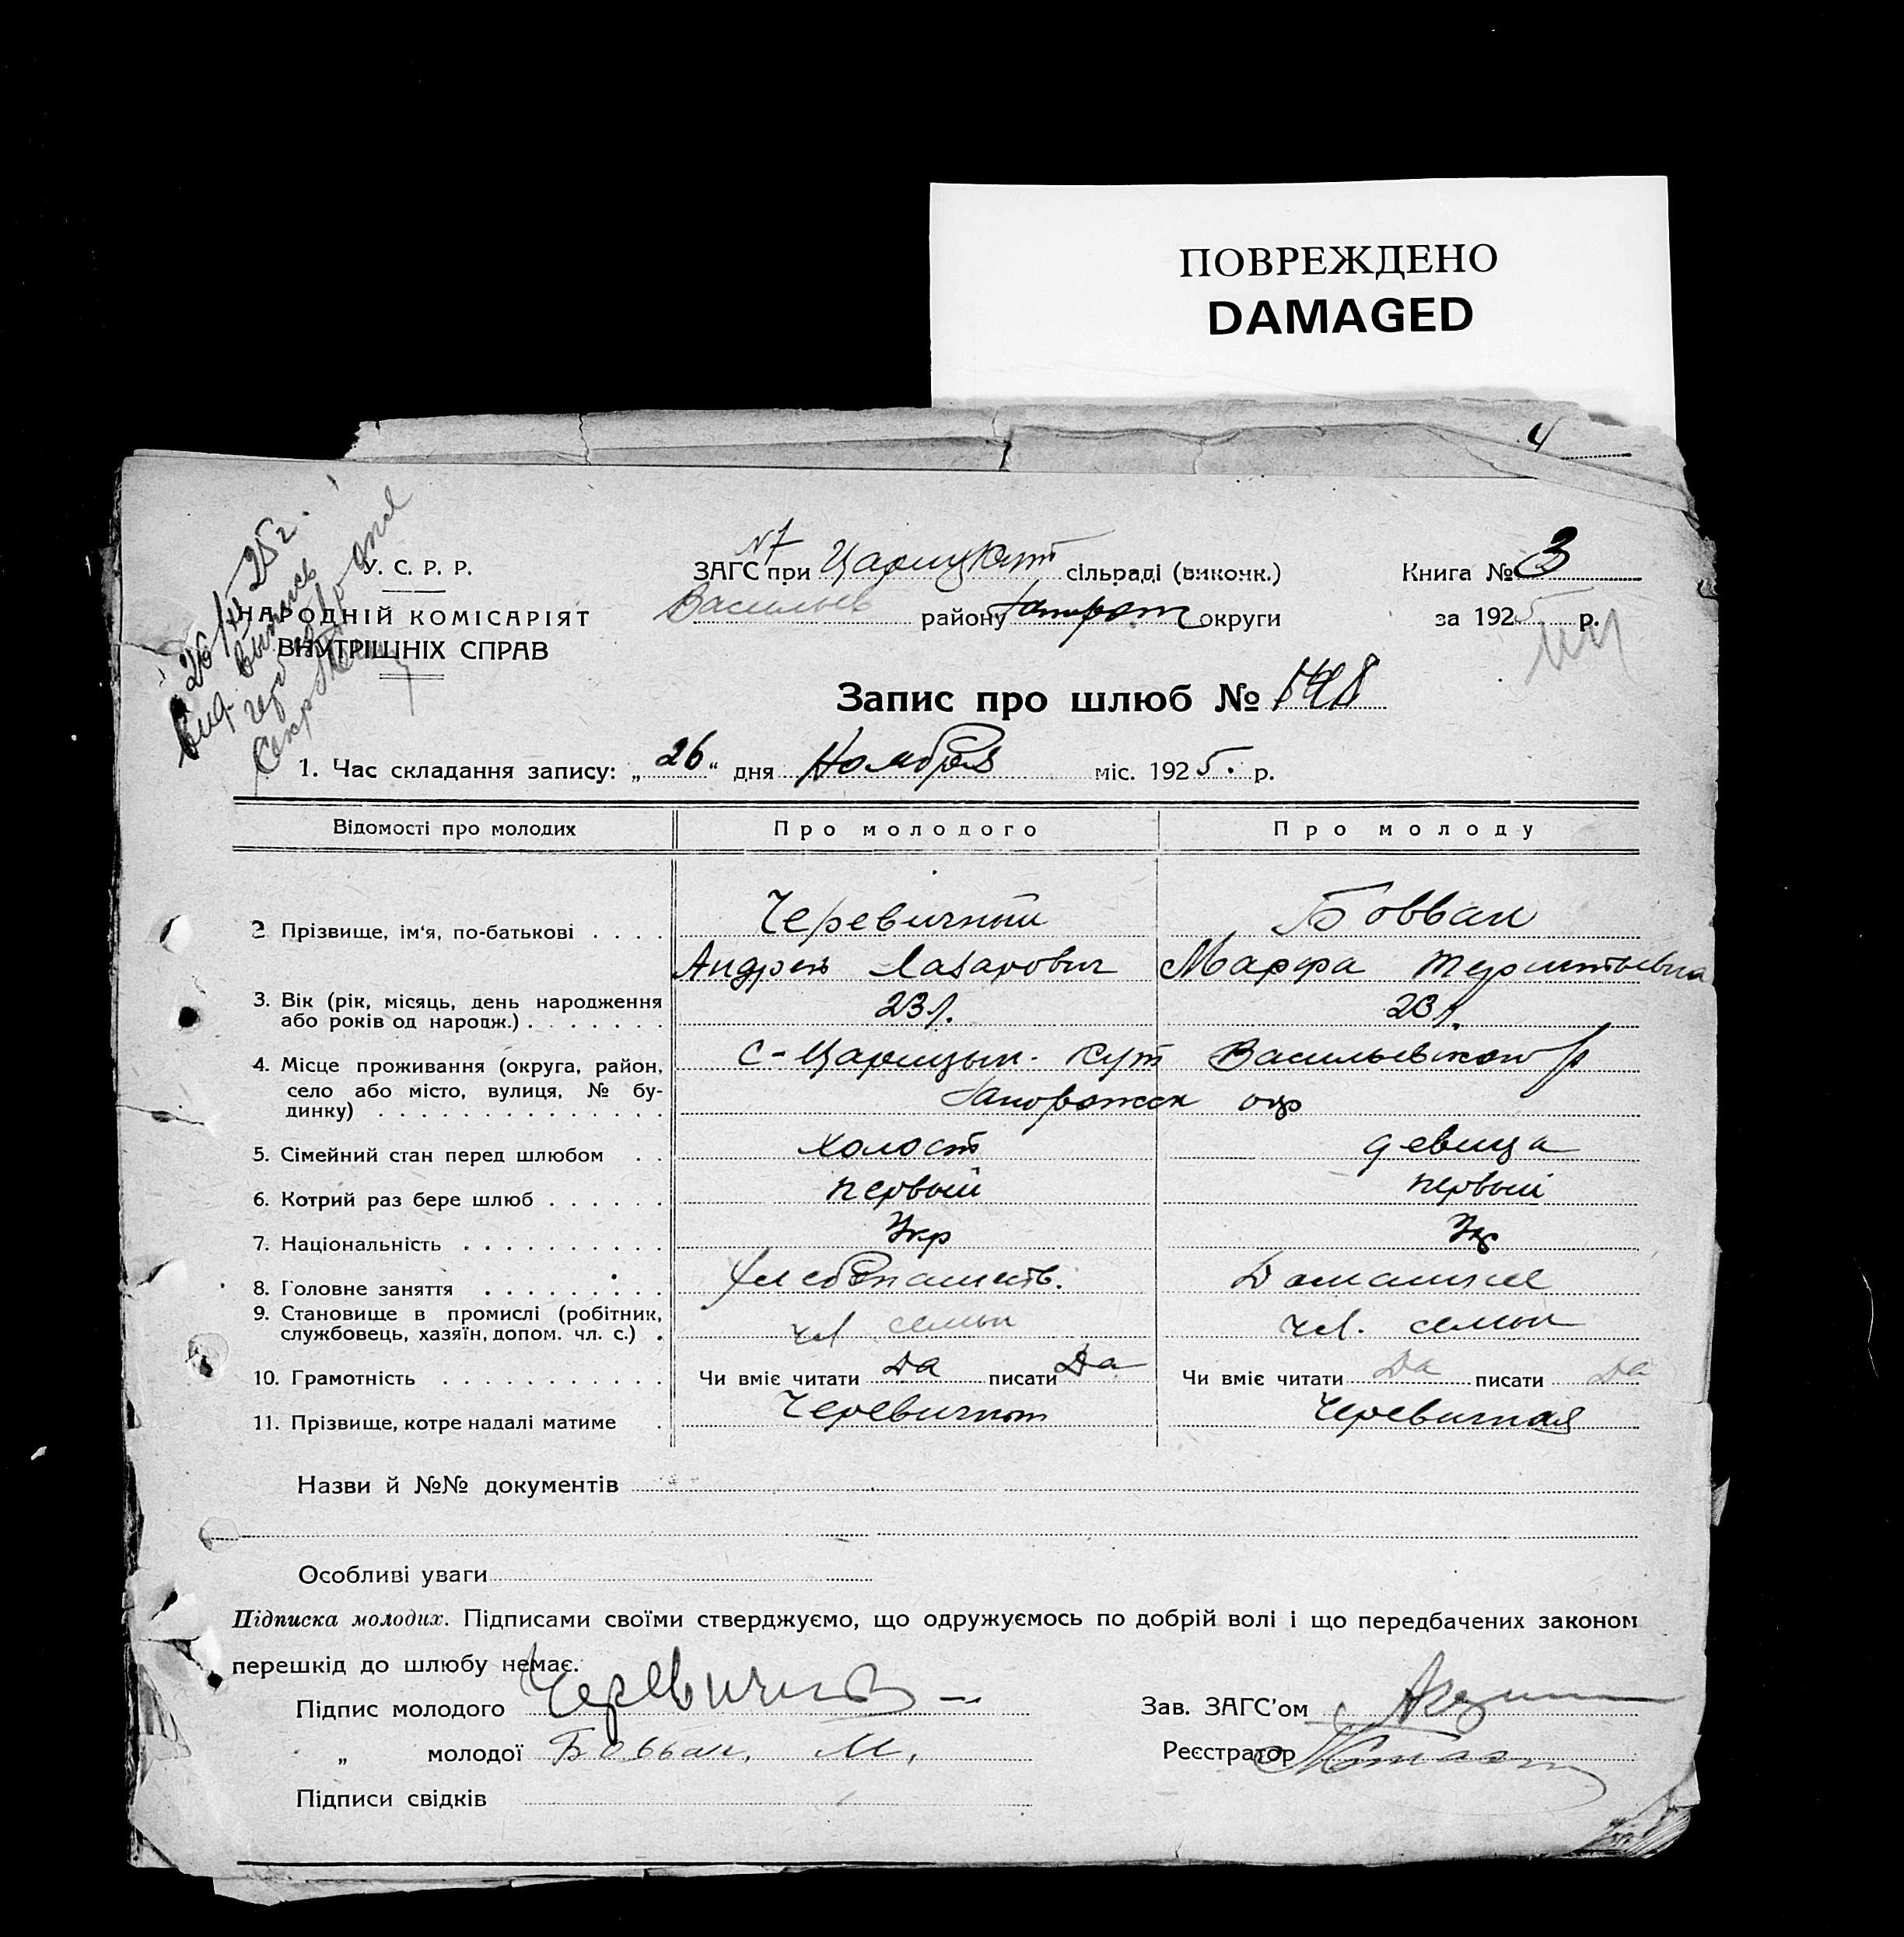 ПОВРЕЖДЕНО
DAMAGED
4
26/XI 25 г.
У. С. Р. Р.
НАРОДНІЙ КОМІСАРІЯТ
ВНУТРІШНІХ СПРАВ
№7
ЗАГС при Царицкут сільраді (виконк.)
Васильев району Запорож округи
Книга № 3
за 1925 р.
Запис про шлюб № 148
1. Час складання запису: „26“ дня Ноября міс. 1925. р.
Відомості про молодих Про молодого Про молоду
2 Прізвище, ім'я, по-батькові Черевичный Бовван
Андрей Лазарович Марфа Терентьевна
3. Вік (рік, місяць, день народження або років од народж.) 23 л. 23 л.
4. Місце проживання (округа, район, село або місто, вулиця, № будинку) с-Царицын-Кут Васильевского р
Запорожск окр
5. Сімейний стан перед шлюбом холост девица
6. Котрий раз бере шлюб первый первый
7. Національність Укр Укр
8. Головне заняття Хлебопашеств. Домашнее
9. Становище в промислі (робітник, службовець, хазяїн, допом. чл. с.) чл семьи чл. семьи
10. Грамотність Чи вміє читати Да писати Да Чи вміє читати Да писати Да
11. Прізвище, котре надалі матиме Черевичный Черевичная
Назви й №№ документів
Особливі уваги
Підписка молодих. Підписами своїми стверджуємо, що одружуємось по добрій волі і що передбачених законом
перешкід до шлюбу немає.
Підпис молодого Черевичный
Зав. ЗАГС'ом
„ молодої Бовван, М,
Реєстратор
Підписи свідків